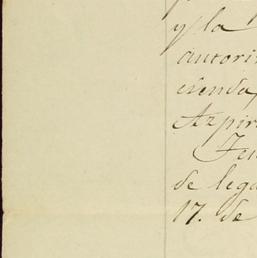 y la
autori
cienda,
Azpir
de lega
17. de